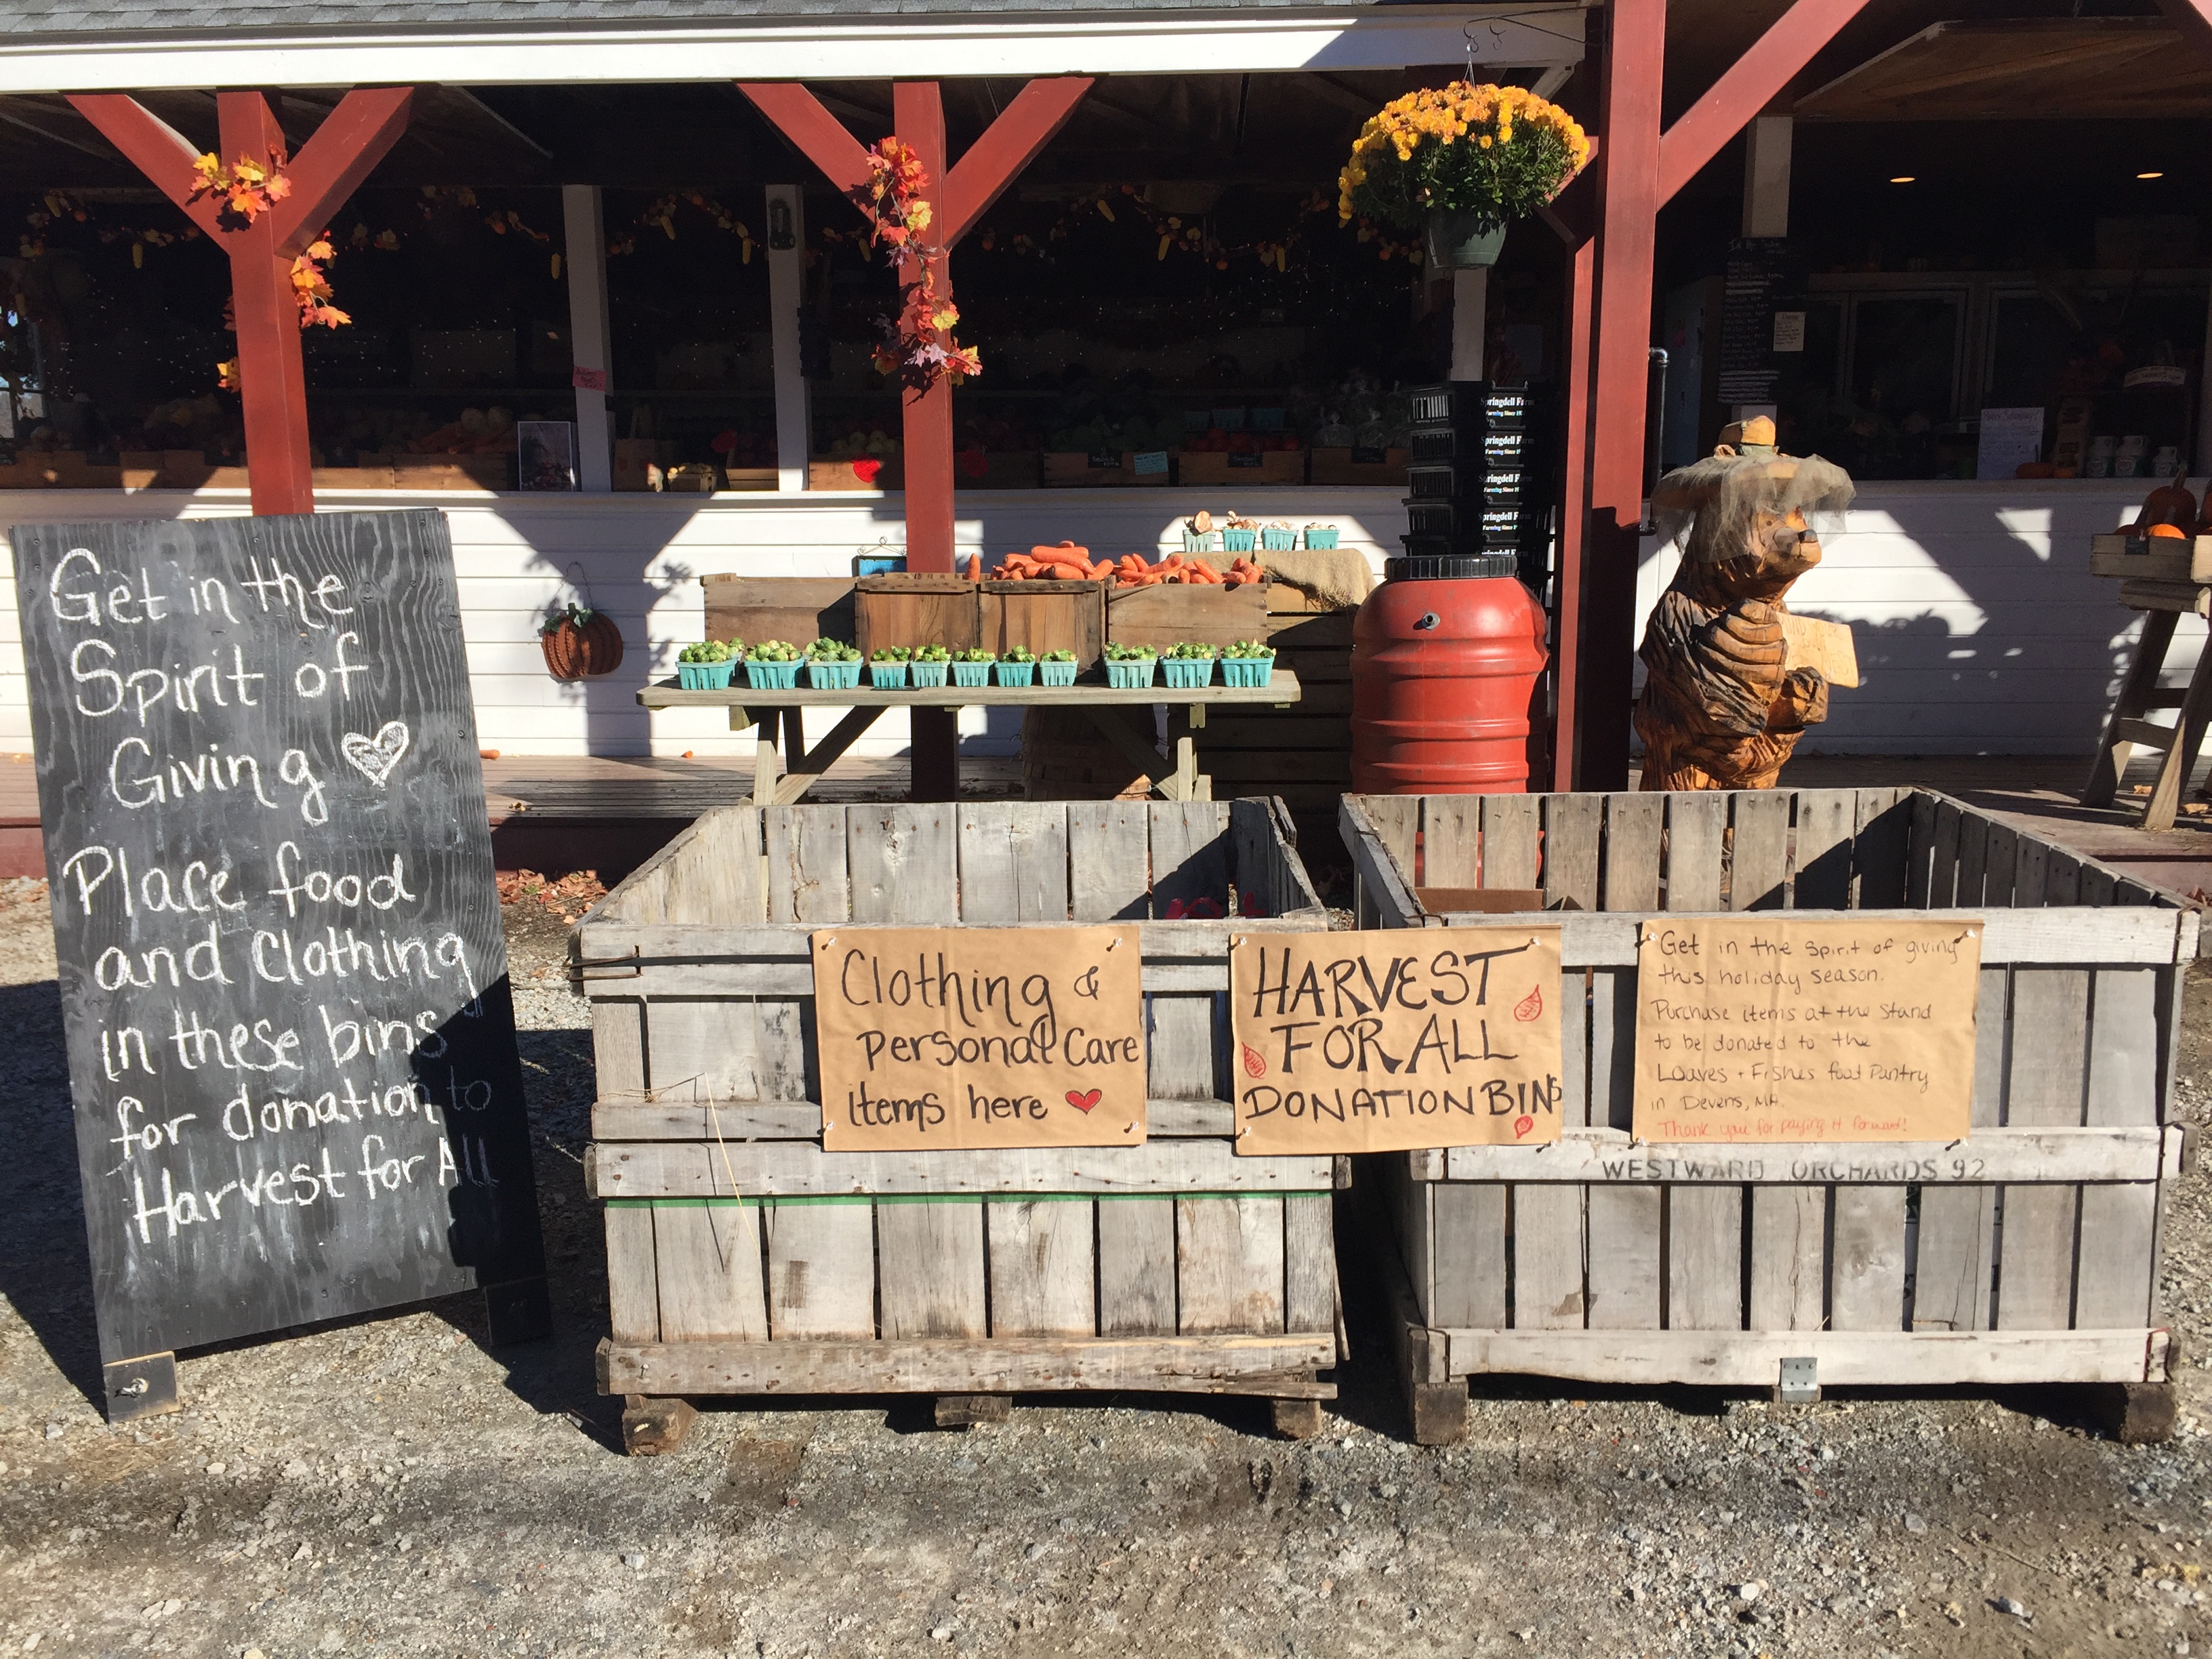 Get in the
Spirit of
Giving
Place food
and Clothing
in these bins
for donation to
Harvest for All
Clothing &
Personal Care
items here
HARVEST
FOR ALL
DONATION BINS
Get in the spirit of giving
this holiday season.
Purchase items at the stand
to be donated to the
Loaves + Fishes food Pantry
in Devens, MA.
Thank you for paying it forward!
WESTWARD ORCHARDS 92
Springdell Farm
Farming Since
Springdell Farm
Farming Since
Springdell Farm
Farming Since
Springdell Farm
Farming Since
Springdell Farm